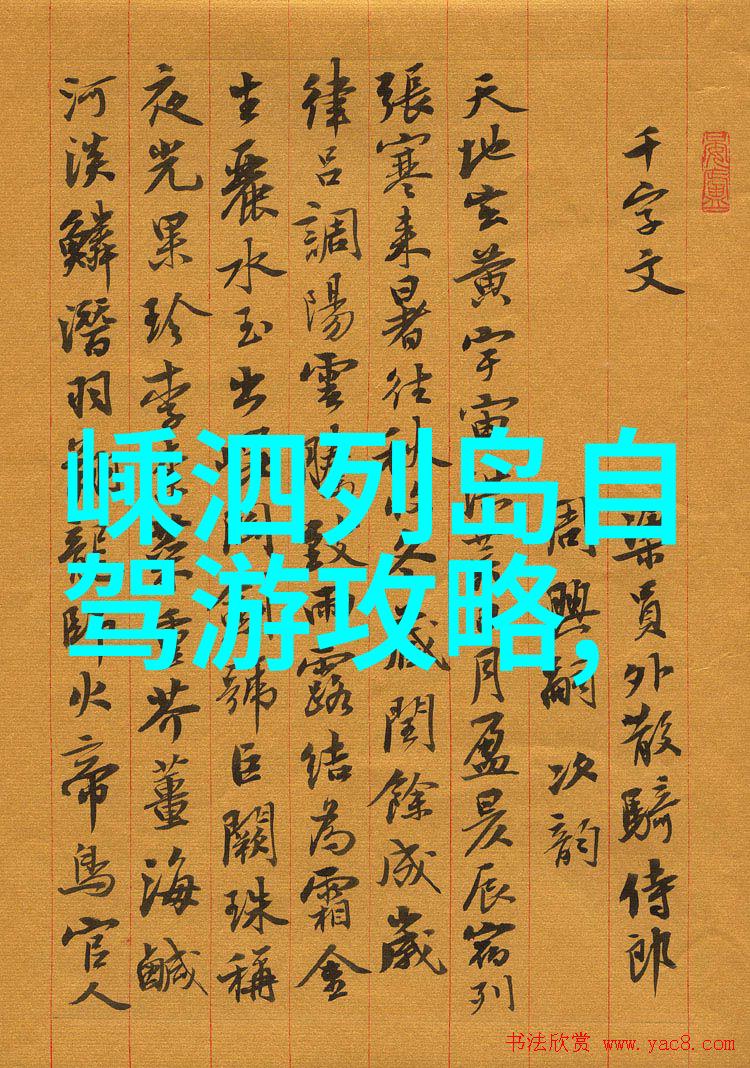 千字文 梁員外散騎侍郎
周興嗣 次韵
天地玄黃宇宙洪荒日月盈昃辰宿列
張寒來暑往秋收冬藏閏餘成歲
律呂調陽雲騰致雨露結為霜金
生麗水玉出崑岡劍號巨闕珠稱
夜光果珍李柰菜重芥薑海鹹
河淡鱗潛羽翔龍師火帝鳥官人
嵊泗列岛自
驾游攻略,
书法欣赏 www.yac8.com